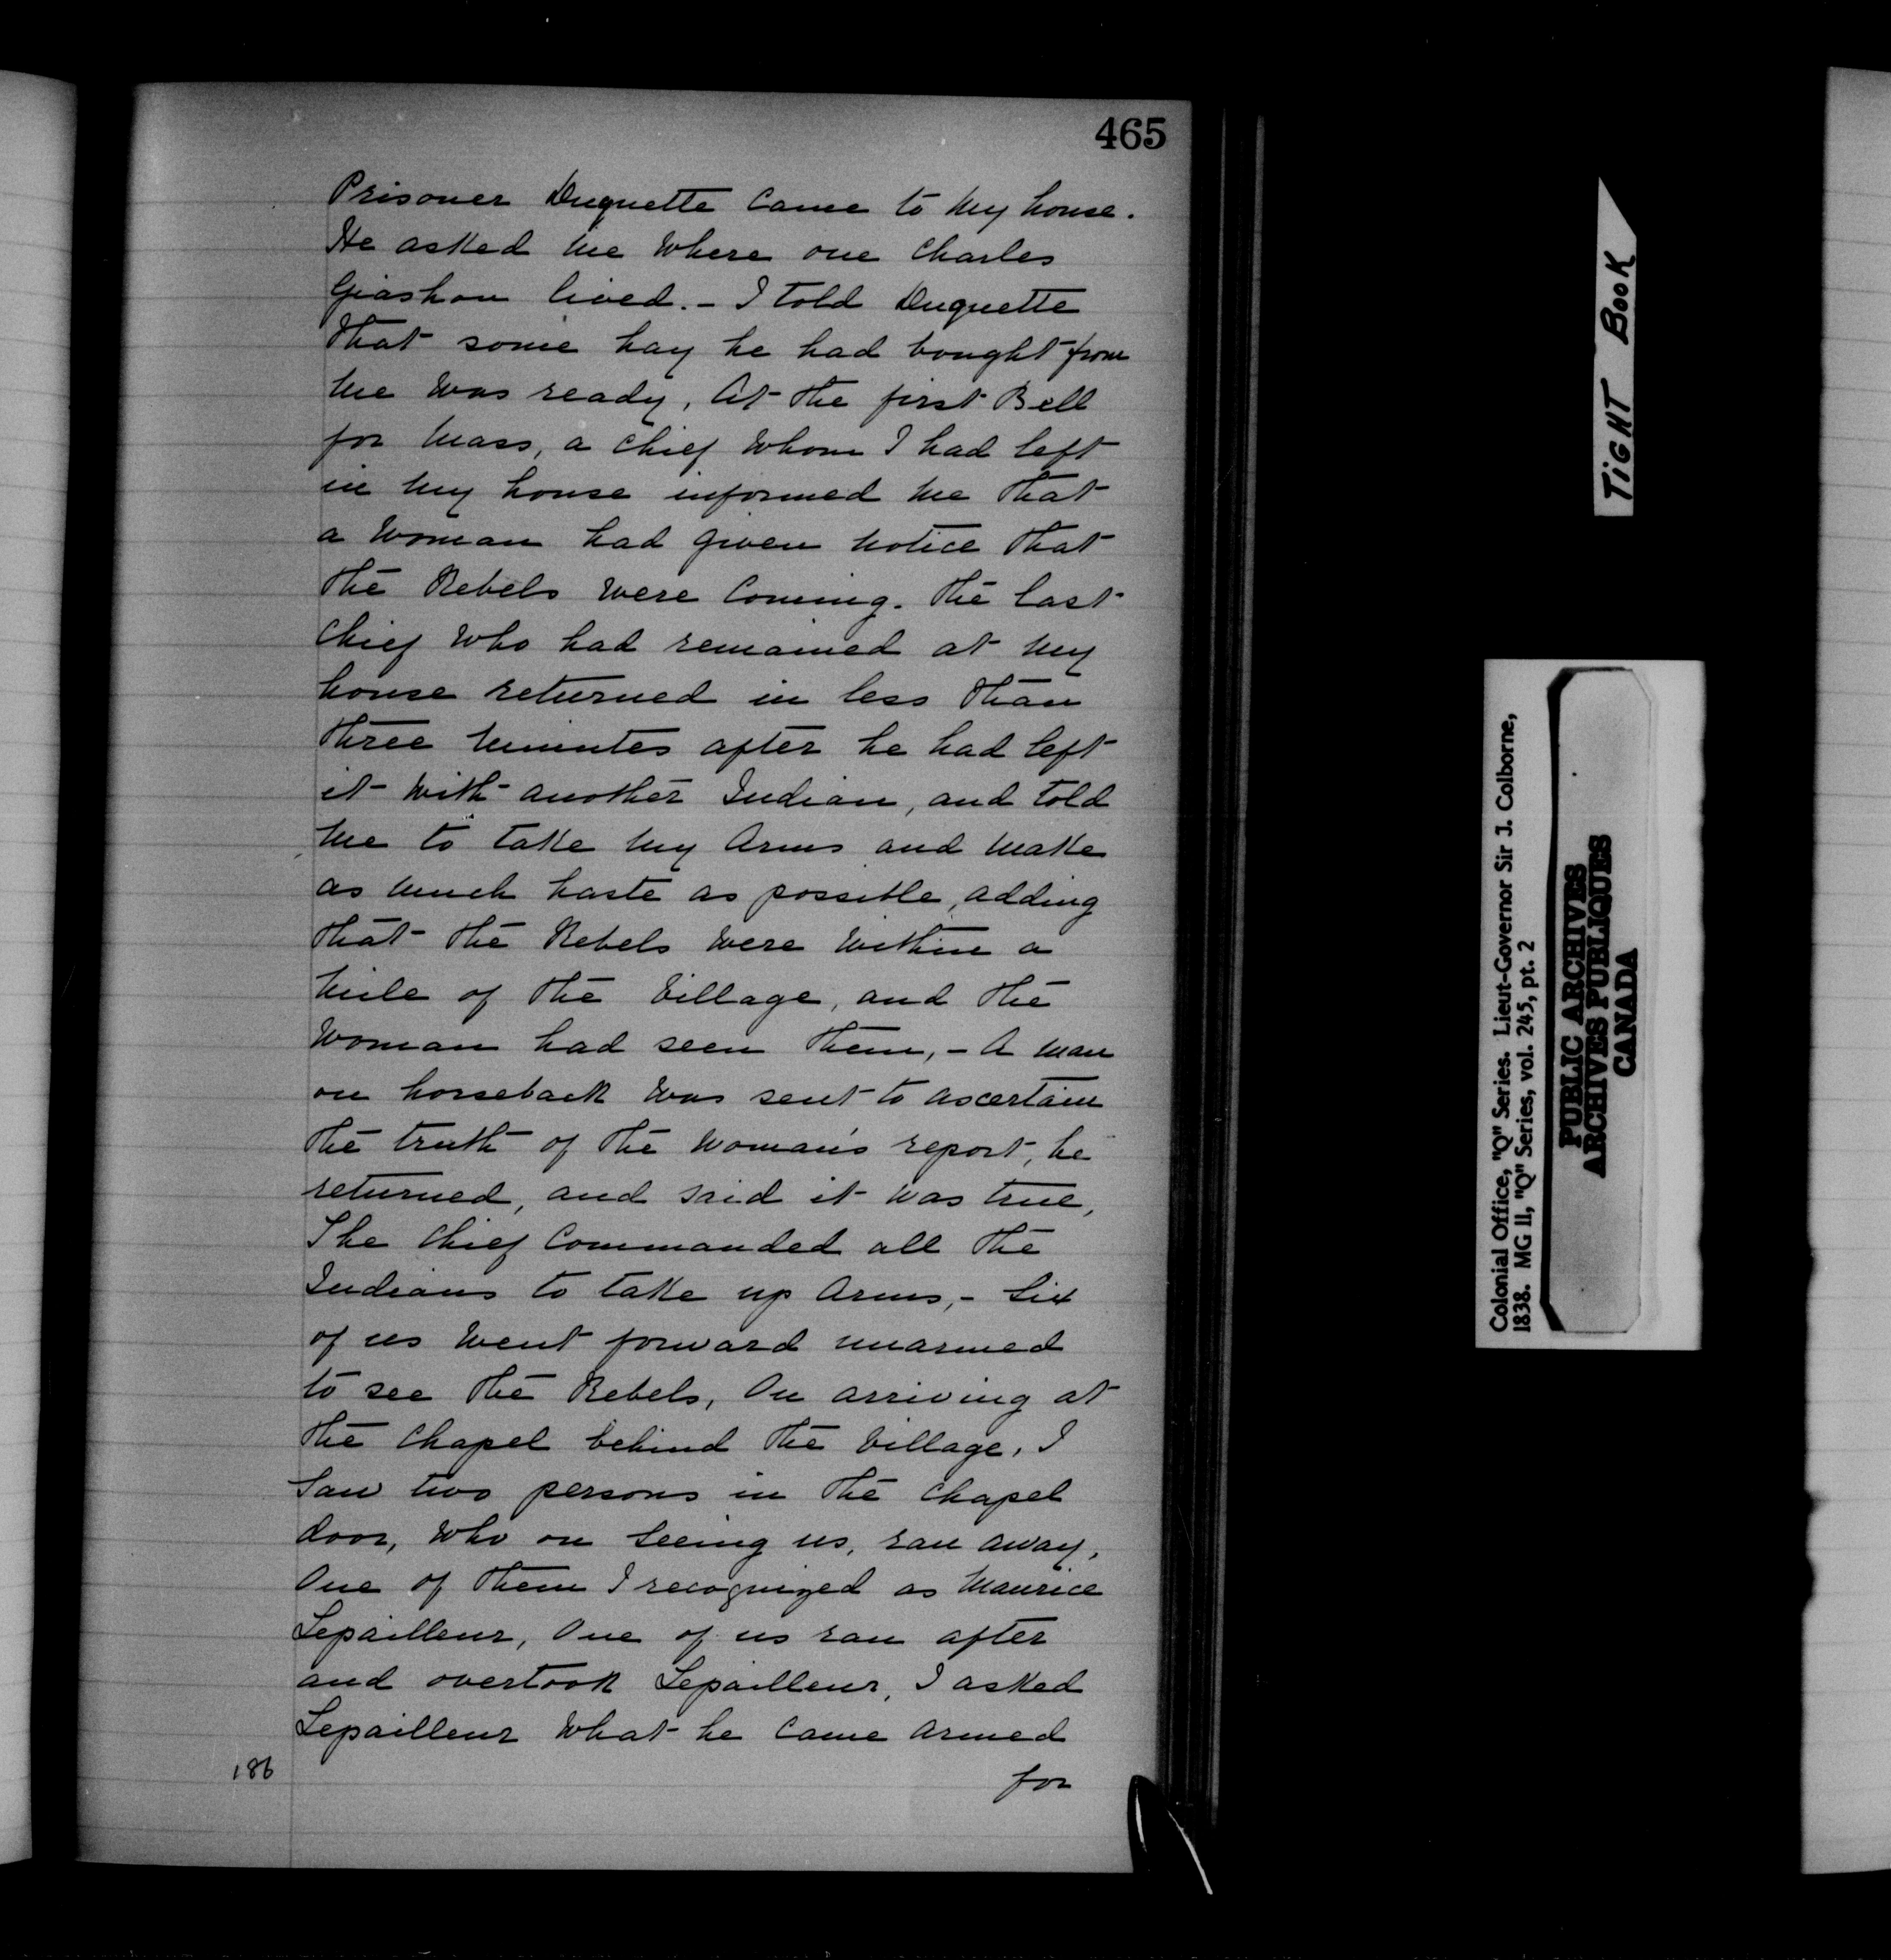 465
Prisoner Duquette Came to my house.
He asked me where one Charles
Giashon lived. - I told Duquette
that some hay he had bought from
me was ready, At the first Bell
for Mass, a Chief whom I had left
in my house informed me that
a woman had given notice that
the Rebels were Coming. The last
Chief who had remained at my
house returned in less than
three minutes after he had left
it with another Indian, and told
me to take my Arms and make
as much haste as possible, adding
that the Rebels were within a
mile of the Village, and the
woman had seen them, - A man
on horseback was sent to ascertain
the truth of the woman's report, he
returned, and said it was true,
The Chief Commanded all the
Indians to take up Arms, - Six
of us went forward unarmed
to see the Rebels, On arriving at
the Chapel behind the Village, I
Saw two persons in the Chapel
door, who on Seeing us, ran away,
One of them I recognized as Maurice
Lepailleur, One of us ran after
and overtook Lepailleur, I asked
Lepailleur what he Came Armed
for
186
TIGHT BOOK
Colonial Office, "Q" Series. Lieut-Governor Sir J. Colborne,
1838. MG 11, "Q" Series, vol. 245, pt. 2
PUBLIC ARCHIVES
ARCHIVES PUBLIQUES
CANADA